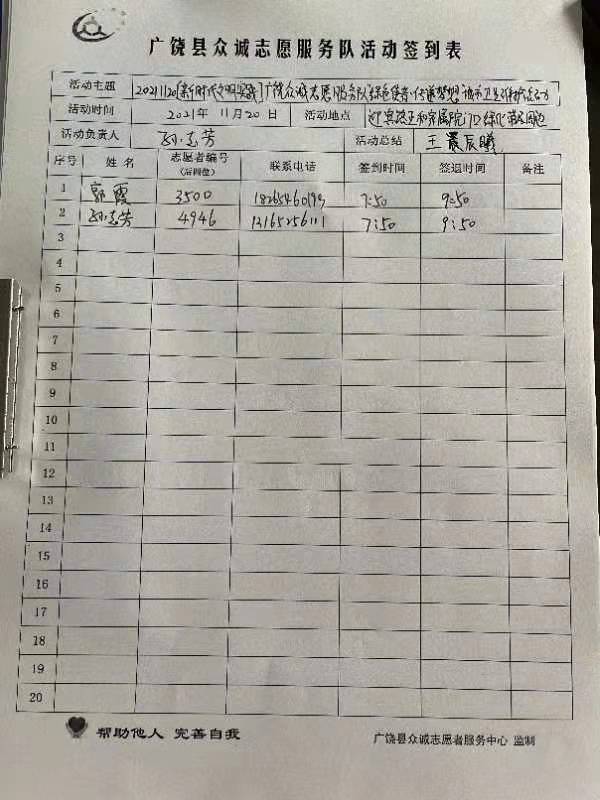 广饶县众诚志愿服务队活动签到表
活动主题 20211120[新时代文明实践]广饶众诚志愿服务队绿色使者·传递梦想 城市卫生
活动时间 2021年 11月20日 活动地点 家属院门口绿化带周边
活动负责人 孙志芳 活动总结 王晨曦
序号 姓名 志愿者编号(后四位) 联系电话 签到时间 签退时间 备注
1 郭霞 3500 7:50 9:50
2 孙志芳 4946 7:50 9:50
3
4
5
6
7
8
9
10
11
12
13
14
15
16
17
18
19
20
帮助他人 完善自我 广饶县众诚志愿者服务中心 监制